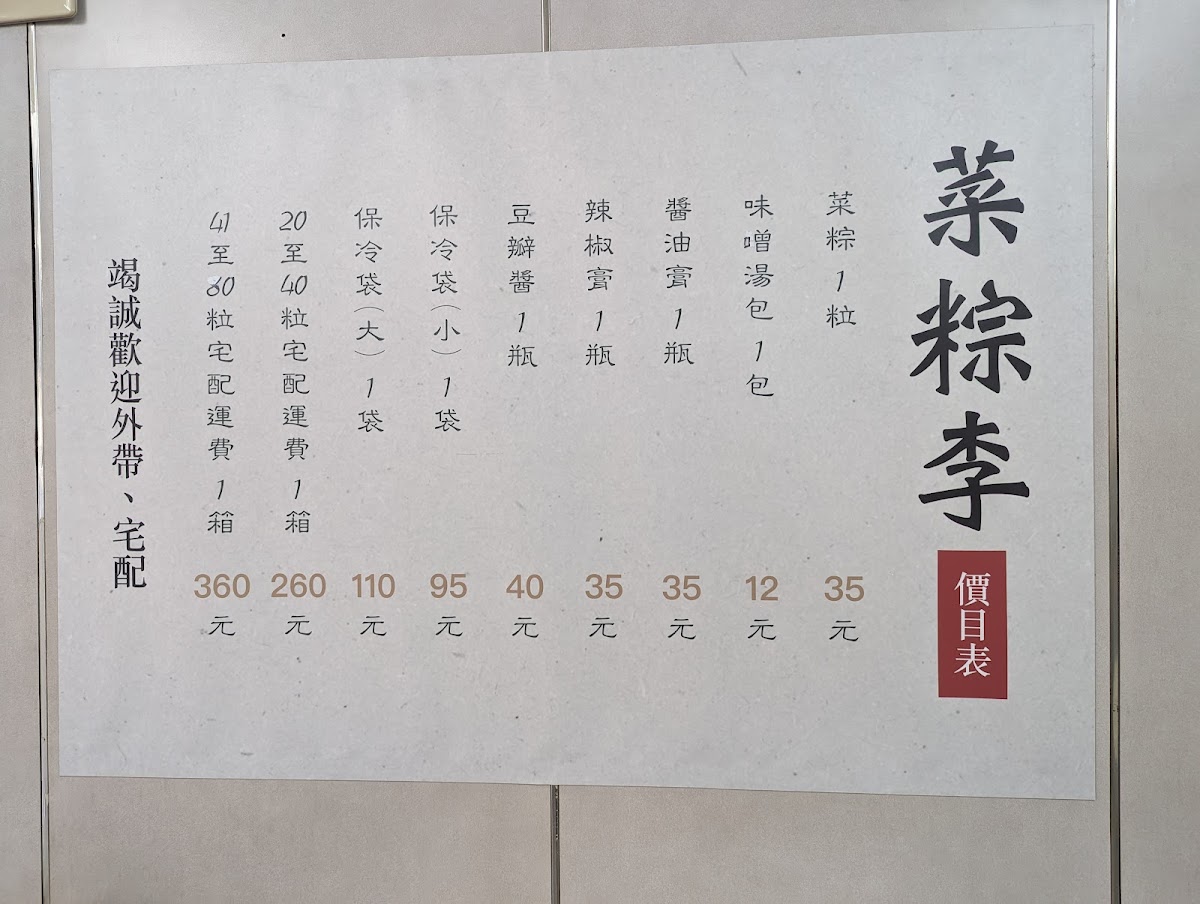 菜粽李
價目表
菜粽1粒 35元
味噌湯包1包 12元
醬油膏1瓶 35元
辣椒膏1瓶 35元
豆瓣醬1瓶 40元
保冷袋(小)1袋 95元
保冷袋(大)1袋 110元
20至40粒宅配運費1箱 260元
41至80粒宅配運費1箱 360元
竭誠歡迎外帶、宅配